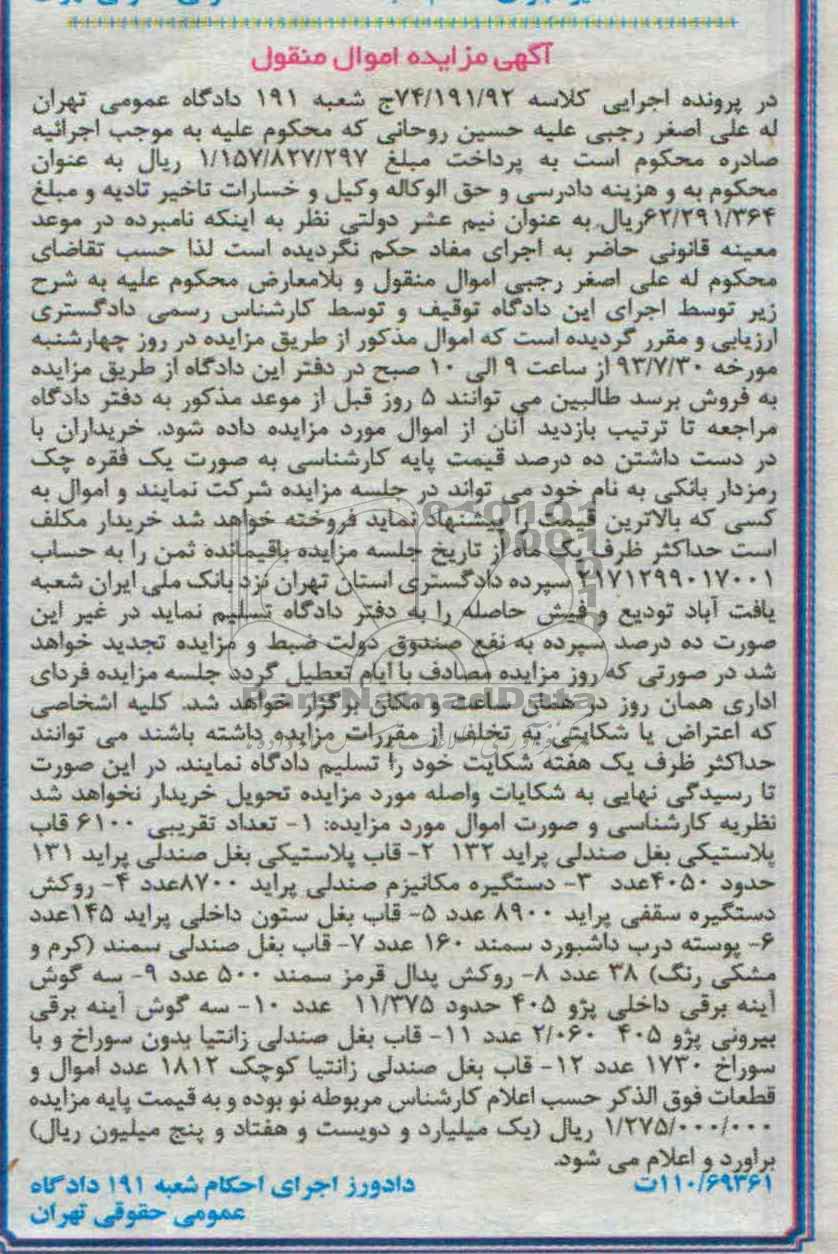 آگهی مزایده اموال منقول
در پرونده اجرایی کلاسه ۷۴/۱۹۱/۹۲ج شعبه ۱۹۱ دادگاه عمومی تهران
له علی اصغر رجبی علیه حسین روحانی که محکوم علیه به موجب اجرائیه
صادره محکوم است به پرداخت مبلغ ۱/۱۵۷/۸۲۷/۲۹۷ ریال به عنوان
محکوم به و هزینه دادرسی و حق الوکاله وکیل و خسارات تاخیر تادیه و مبلغ
۶۲/۲۹۱/۳۶۴ریال به عنوان نیم عشر دولتی نظر به اینکه نامبرده در موعد
معینه قانونی حاضر به اجرای مفاد حکم نگردیده است لذا حسب تقاضای
محکوم له علی اصغر رجبی اموال منقول و بلامعارض محکوم علیه به شرح
زیر توسط اجرای این دادگاه توقیف و توسط کارشناس رسمی دادگستری
ارزیابی و مقرر گردیده است که اموال مذکور از طریق مزایده در روز چهارشنبه
مورخه ۹۳/۷/۳۰ از ساعت ۹ الی ۱۰ صبح در دفتر این دادگاه از طریق مزایده
به فروش برسد طالبین می توانند ۵ روز قبل از موعد مذکور به دفتر دادگاه
مراجعه تا ترتیب بازدید آنان از اموال مورد مزایده داده شود. خریداران با
در دست داشتن ده درصد قیمت پایه کارشناسی به صورت یک فقره چک
رمزدار بانکی به نام خود می تواند در جلسه مزایده شرکت نمایند و اموال به
کسی که بالاترین قیمت را پیشنهاد نماید فروخته خواهد شد خریدار مکلف
است حداکثر ظرف یک ماه از تاریخ جلسه مزایده باقیمانده ثمن را به حساب
۲۱۷۱۲۹۹۰۱۷۰۰۱ سپرده دادگستری استان تهران نزد بانک ملی ایران شعبه
یافت آباد تودیع و فیش حاصله را به دفتر دادگاه تسلیم نماید در غیر این
صورت ده درصد سپرده به نفع صندوق دولت ضبط و مزایده تجدید خواهد
شد در صورتی که روز مزایده مصادف با ایام تعطیل گردد جلسه مزایده فردای
اداری همان روز در همان ساعت و مکان برگزار خواهد شد. کلیه اشخاصی
که اعتراض یا شکایتی به تخلف از مقررات مزایده داشته باشند می توانند
حداکثر ظرف یک هفته شکایت خود را تسلیم دادگاه نمایند. در این صورت
تا رسیدگی نهایی به شکایات واصله مورد مزایده تحویل خریدار نخواهد شد
نظریه کارشناسی و صورت اموال مورد مزایده: ۱- تعداد تقریبی ۶۱۰۰ قاب
پلاستیکی بغل صندلی پراید ۱۳۲ ۲- قاب پلاستیکی بغل صندلی پراید ۱۳۱
حدود ۴۰۵۰عدد ۳- دستگیره مکانیزم صندلی پراید ۸۷۰۰عدد ۴- روکش
دستگیره سقفی پراید ۸۹۰۰ عدد ۵- قاب بغل ستون داخلی پراید ۱۴۵عدد
۶- پوسته درب داشبورد سمند ۱۶۰ عدد ۷- قاب بغل صندلی سمند (کرم و
مشکی رنگ) ۳۸ عدد ۸- روکش پدال قرمز سمند ۵۰۰ عدد ۹- سه گوش
آینه برقی داخلی پژو ۴۰۵ حدود ۱۱/۳۷۵ عدد ۱۰- سه گوش آینه برقی
بیرونی پژو ۴۰۵ ۲/۰۶۰ عدد ۱۱- قاب بغل صندلی زانتیا بدون سوراخ و با
سوراخ ۱۷۳۰ عدد ۱۲- قاب بغل صندلی زانتیا کوچک ۱۸۱۲ عدد اموال و
قطعات فوق الذکر حسب اعلام کارشناس مربوطه نو بوده و به قیمت پایه مزایده
۱/۲۷۵/۰۰۰/۰۰۰ ریال (یک میلیارد و دویست و هفتاد و پنج میلیون ریال)
براورد و اعلام می شود.
۱۱۰/۶۹۳۶۱ت دادورز اجرای احکام شعبه ۱۹۱ دادگاه
عمومی حقوقی تهران
ParsNamadData